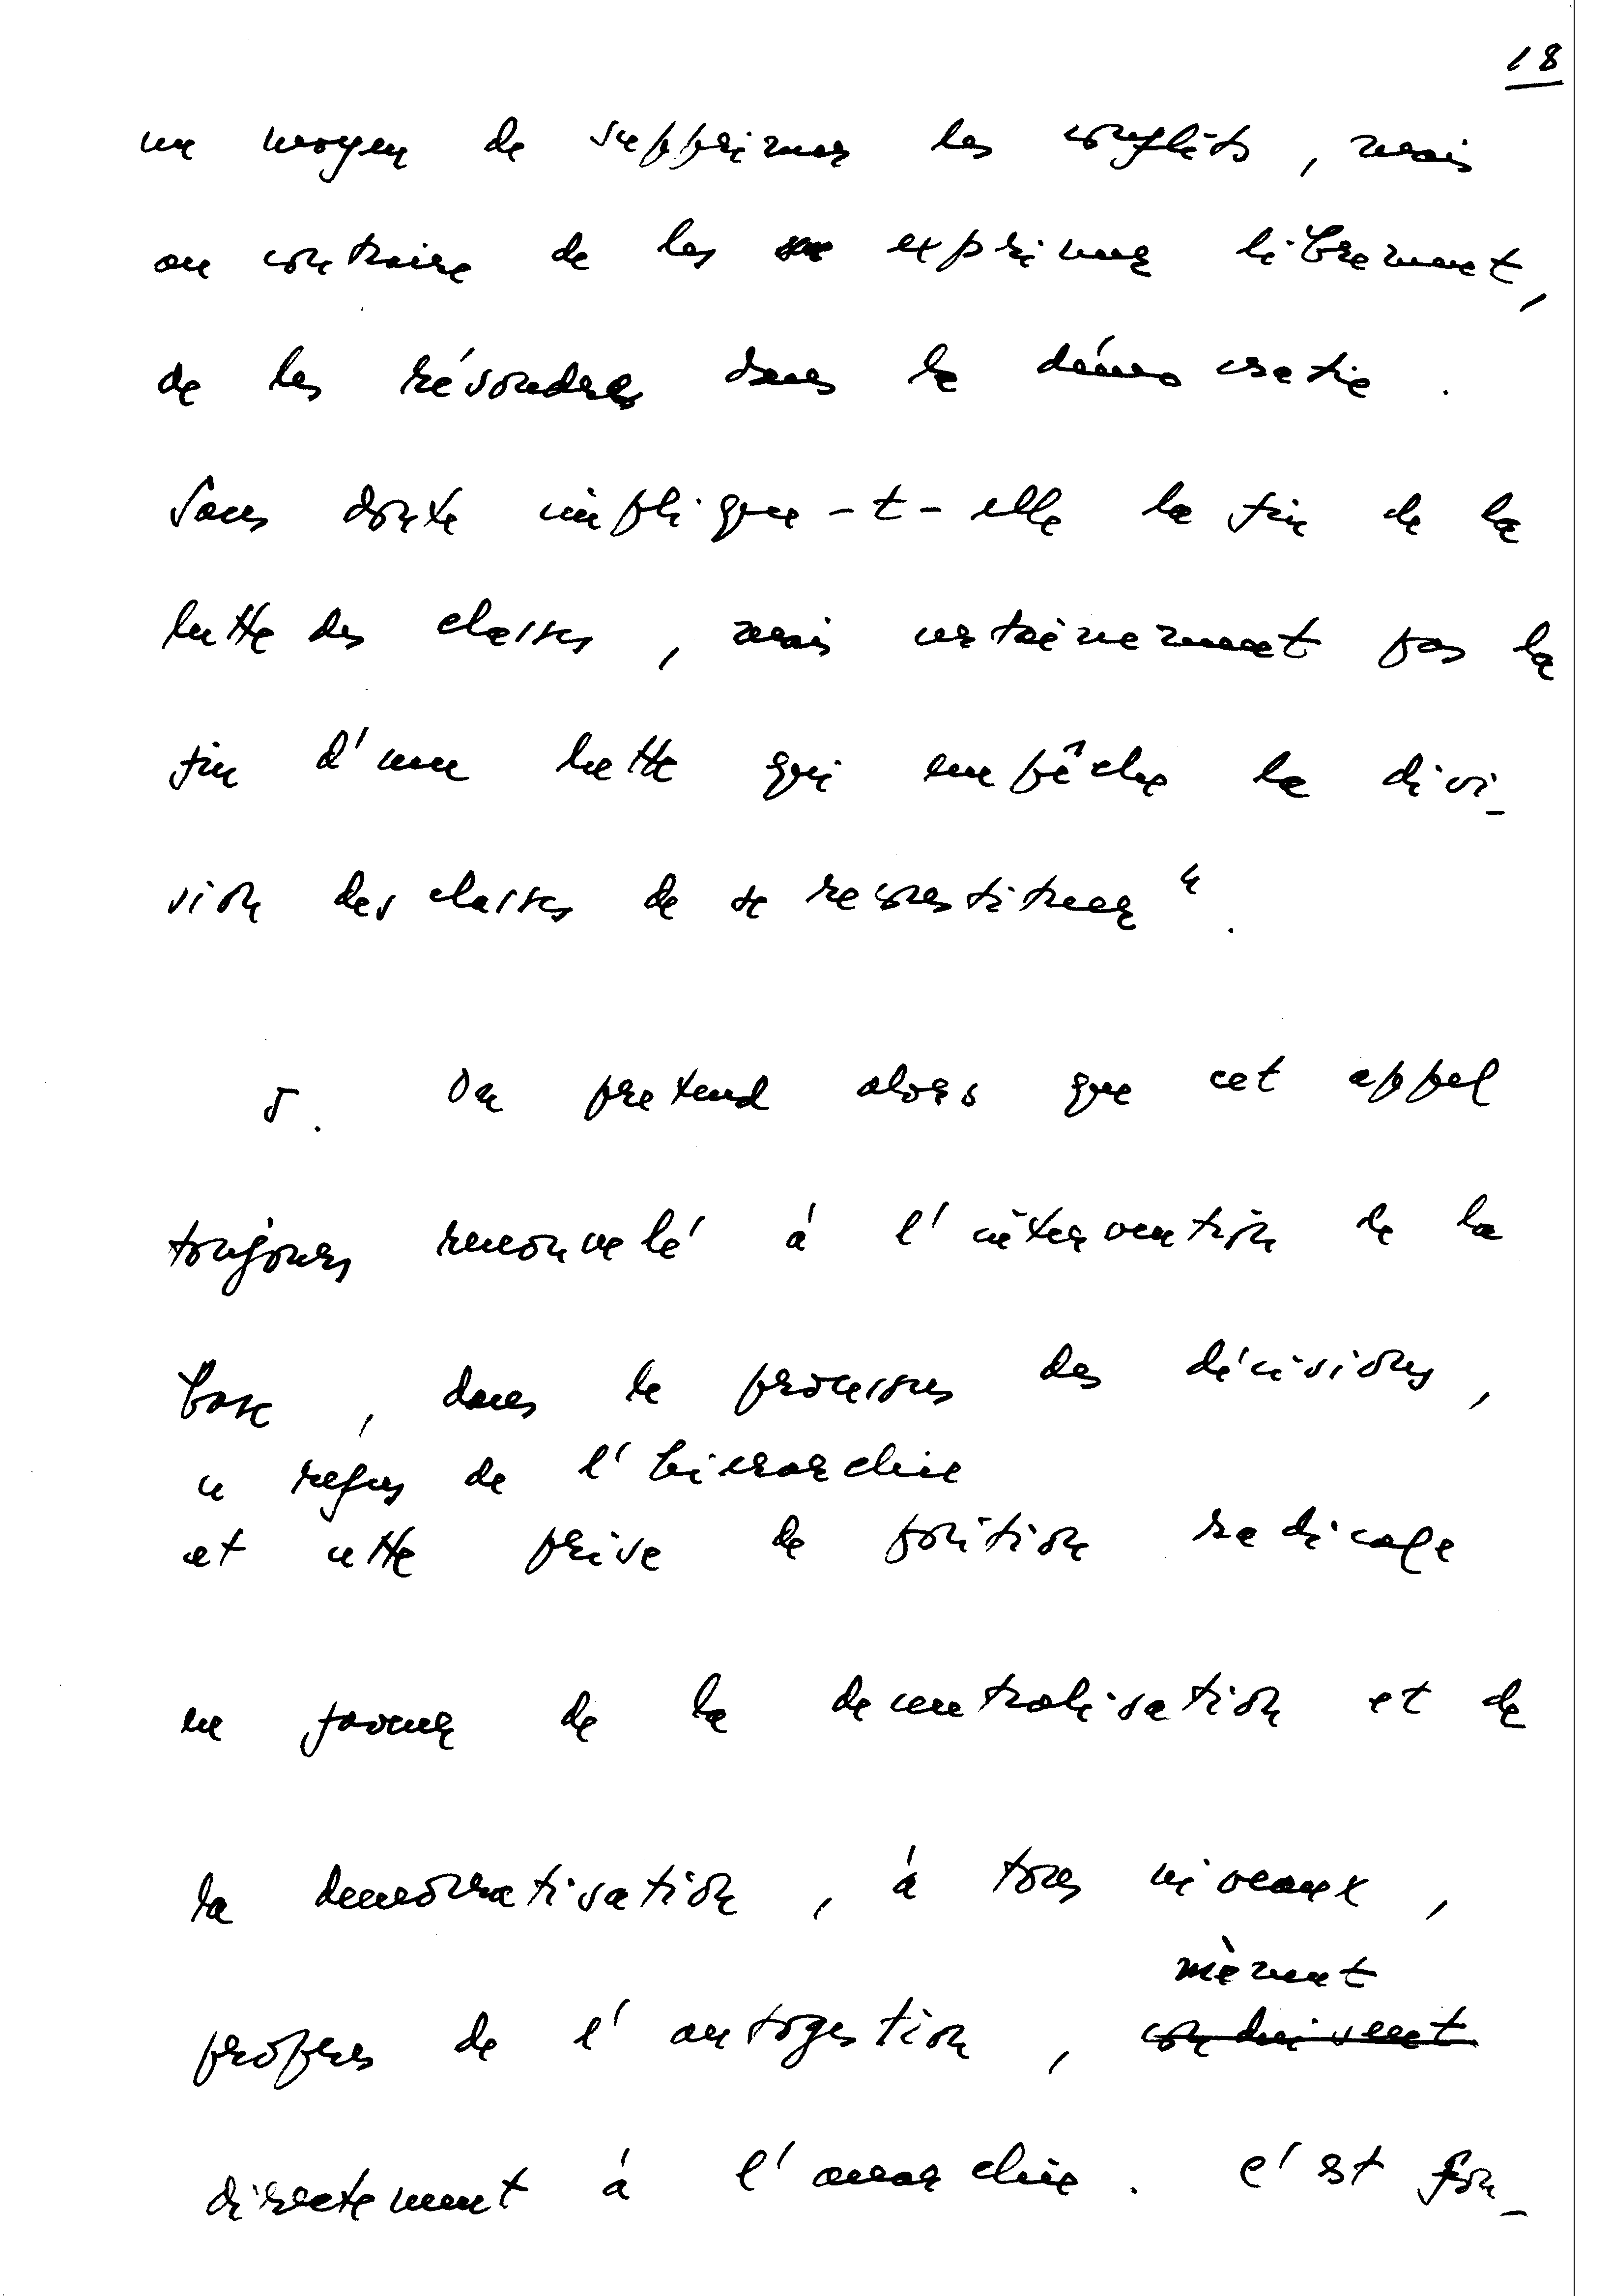 18
un moyen de supprimer les conflits, mais
au contraire de les exprimer librement,
de les résoudre dans la démocratie.
Sans doute implique-t-elle la fin de la
lutte des classes, mais certainement pas la
fin d'une lutte qui empêche la divi-
sion des classes de se reconstituer".
5. On pretend alors que cet appel
toujours renouvelé à l'intervention de la
base, dans le processus des décisions,
ce refus de l'hierarchie
et cette prise de position radicale
en faveur de la decentralisation et de
la democratisation, à tous niveaux,
mènent
propres de l'autogestion, conduisent
directement à l'anarchie. C'est fon-